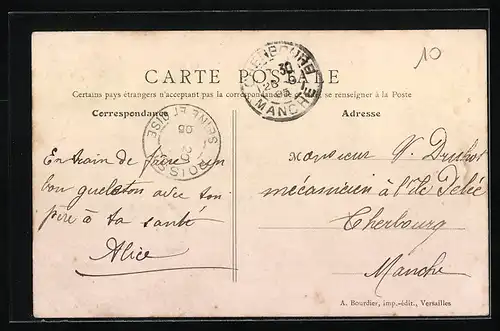 10
CARTE POSTALE
Certains pays étrangers n'acceptant pas la correspondance se renseigner à la Poste
CHERBOURG
MANCHE
Correspondance
Adresse
SEINE ET OISE
En train de faire un
bon gueleton avec ton
père à ta santé
Alice
Monsieur V.
mécanicien à l'île Pelée
Cherbourg
Manche
A. Bourdier, imp.-édit., Versailles